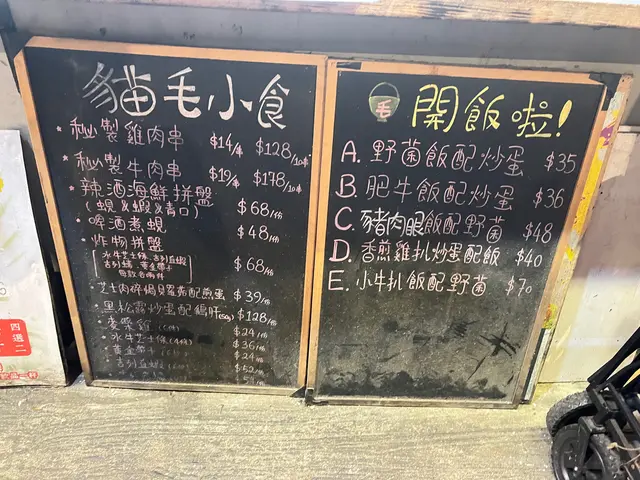 貓毛小食
* 秘製雞肉串 $14/串 $128/10串
* 秘製牛肉串 $19/串 $178/10串
* 辣酒海鮮拼盤 $68/份
(蜆&蝦&青口)
* 啤酒煮蜆 $48/份
* 炸物拼盤 $68/份
芝士肉碎焗 配煎蛋 $39/份
黑松露炒蛋配鵝肝(50g) $128/份
麥樂雞 $24/份
水牛芝士條 $36/份
黃金帶子 $24
吉列 $52/份
毛 開飯啦!
A. 野菌飯配炒蛋 $35
B. 肥牛飯配炒蛋 $36
C. 豬肉眼飯配野菌 $48
D. 香煎雞扒炒蛋配飯 $40
E. 小牛扒飯配野菌 $70
四 週
二